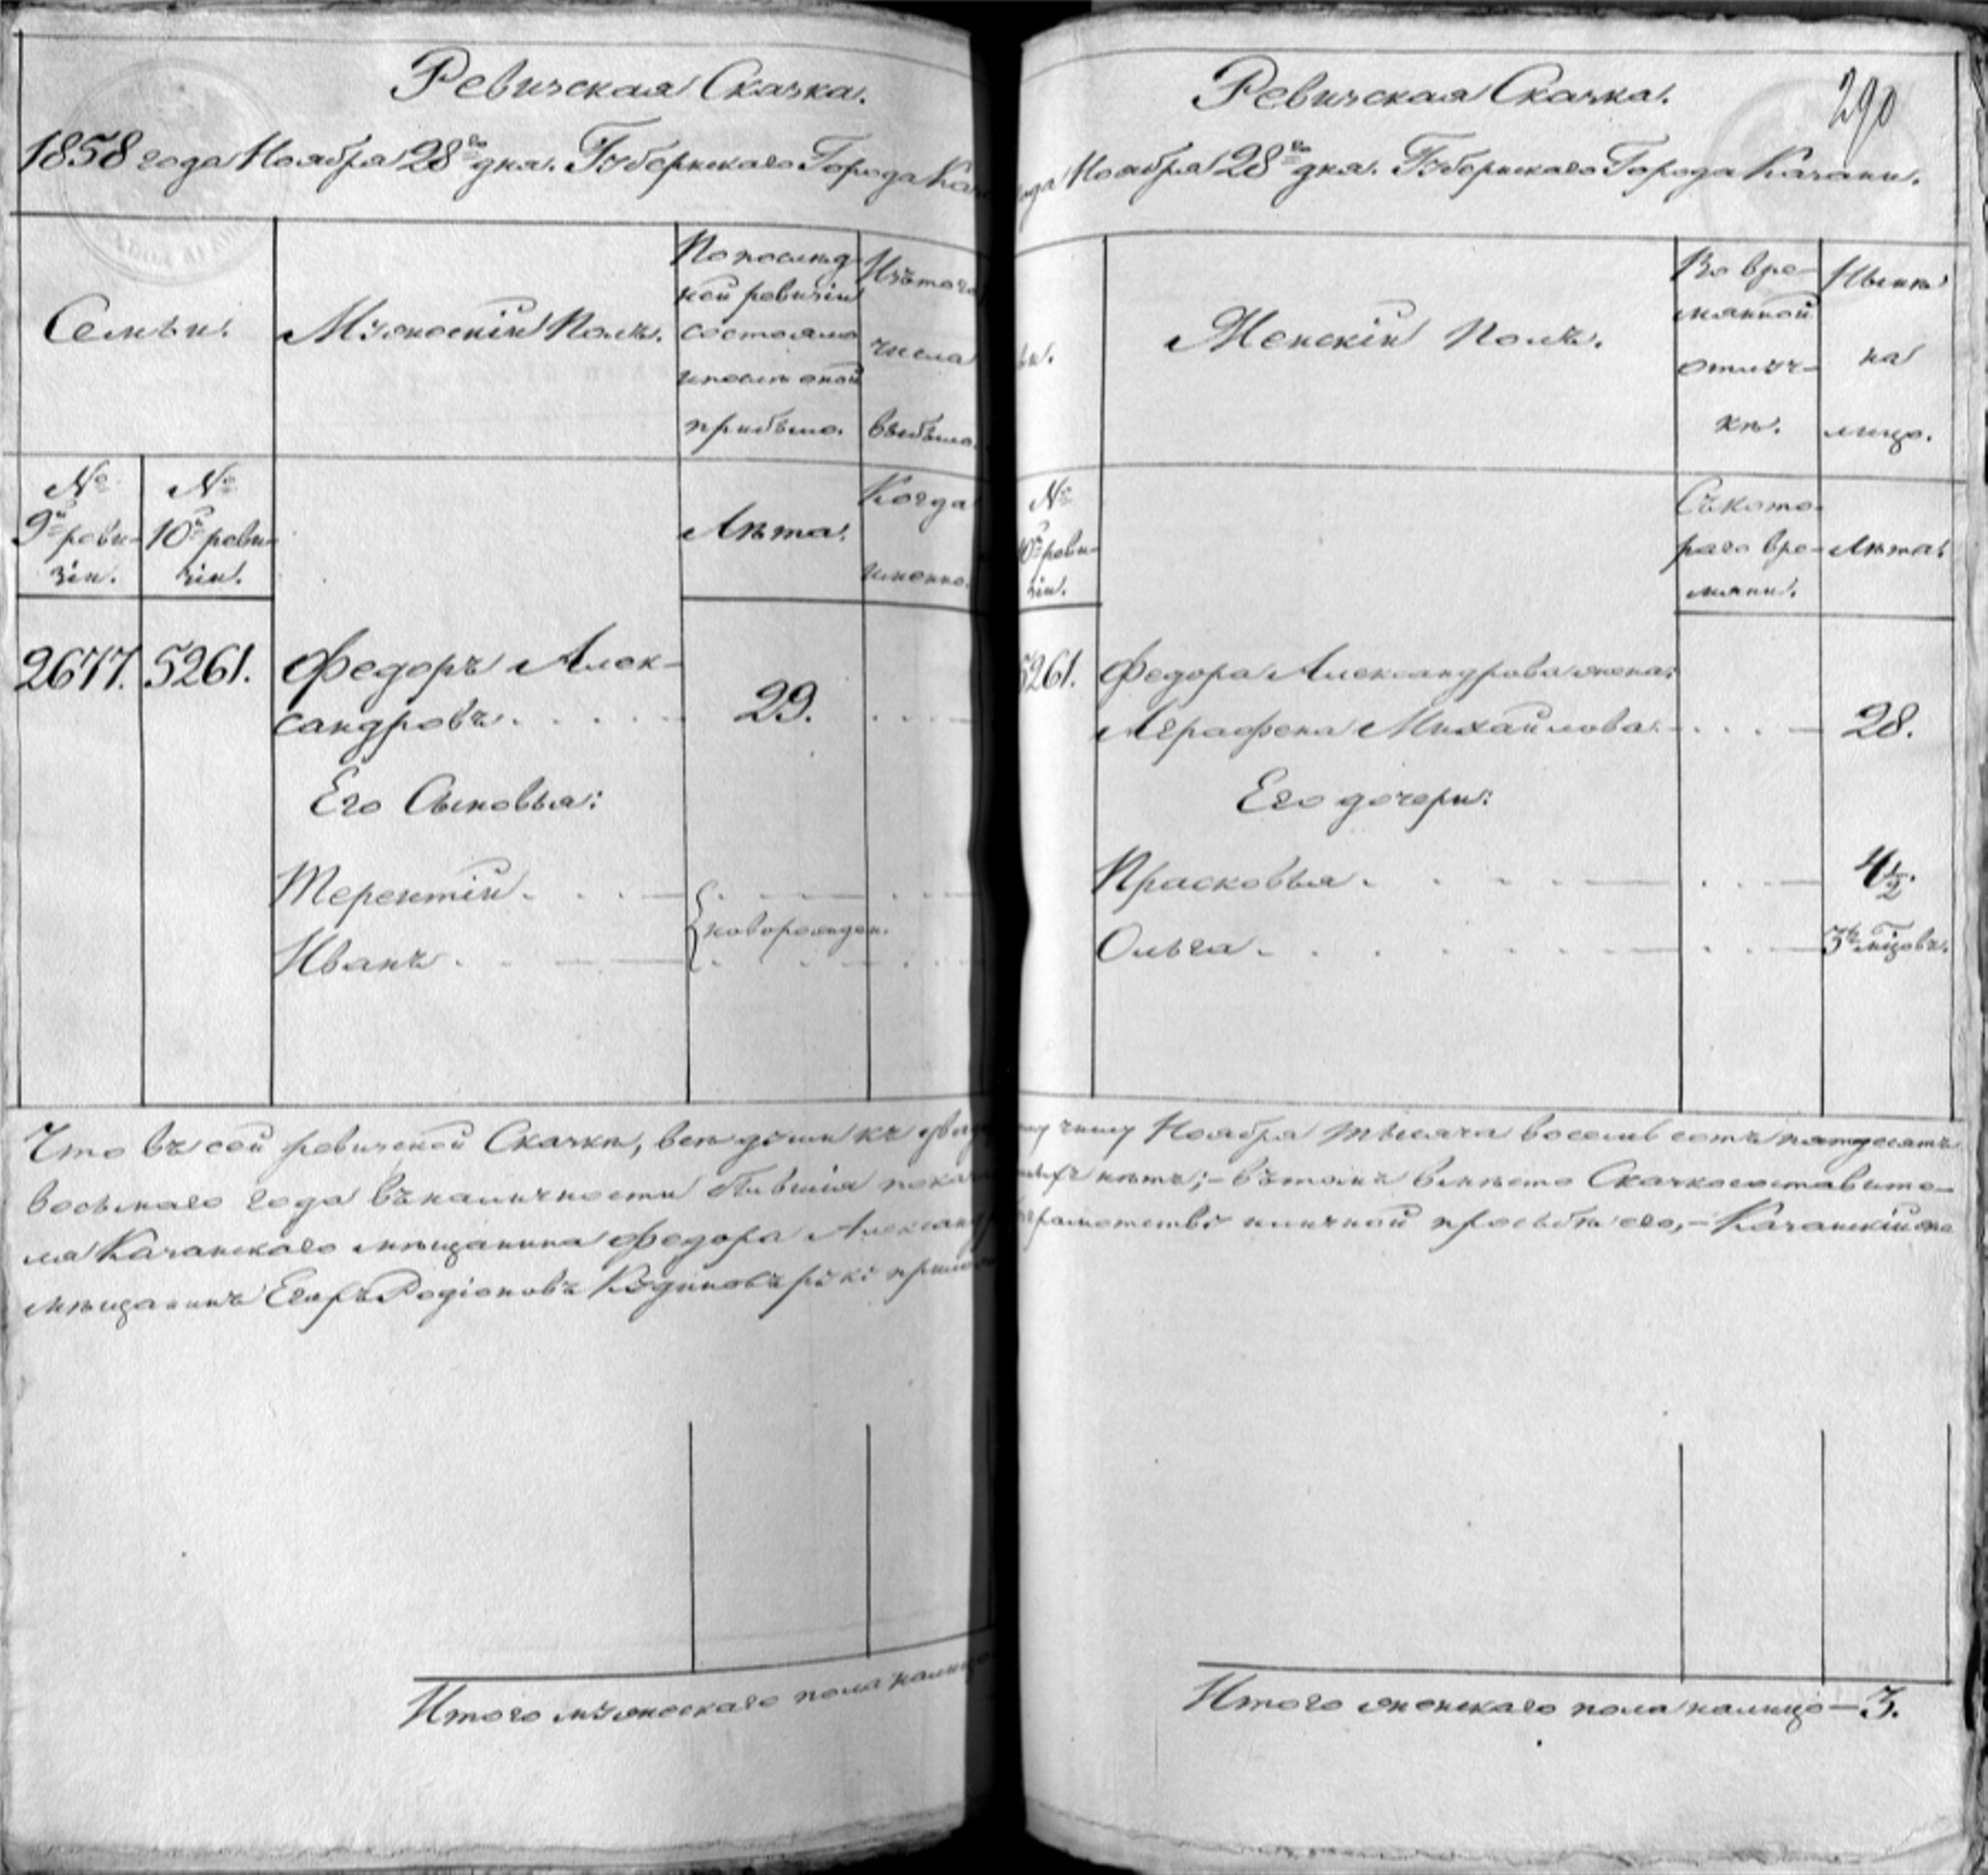 Ревизская Сказка.
1858 года Ноября 28го дня. Губернскаго Города Каз
Семьи.
Мужескій Полъ.
По послѣд-
ней ревизіи
состояло
и послѣ оной
прибыло.
Изъ того
числа
выбыло.
№
9й реви-
зіи.
№
10й реви-
зіи.
Лѣта.
Когда
именно.
2677. 5261. Федоръ Алек-
сандровъ. 29.
Его Сыновья:
Терентій.
новорожден.
Иванъ.
Что въ сей ревизской Сказкѣ, всѣ души къ
восьмаго года въ наличности бывшія показа
ля Казанскаго мѣщанина Федора Александ
мѣщанинъ Егоръ Родіоновъ руку прило
Итого мужескаго пола налицо
290
Ревизская Сказка.
ода Ноября 28го дня. Губернскаго Города Казани.
ьи.
Женскій Полъ.
Во вре-
мянной
отлуч-
кѣ.
Нынѣ
на
лицо.
№
10й реви-
зіи.
Съ кото-
раго вре-
мяни.
Лѣта.
5261. Федора Александрова жена:
Аграфена Михайлова. 28.
Его дочери:
Прасковья. 4½.
Ольга. 3хъ мѣцовъ.
му числу Ноября тысяча восемь сотъ пятдесятъ
нѣтъ;- въ томъ вмѣсто Сказкосоставите-
грамотству и личной просьбѣ его,- Казанскій же
Итого женскаго пола налицо - 3.